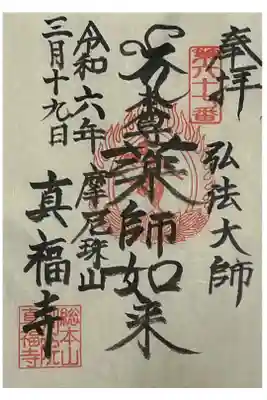 奉拝
弘法大師
第八十七番
本尊薬師如来
摩尼珠山
真福寺
令和六年
三月十九日
総本山
真福寺